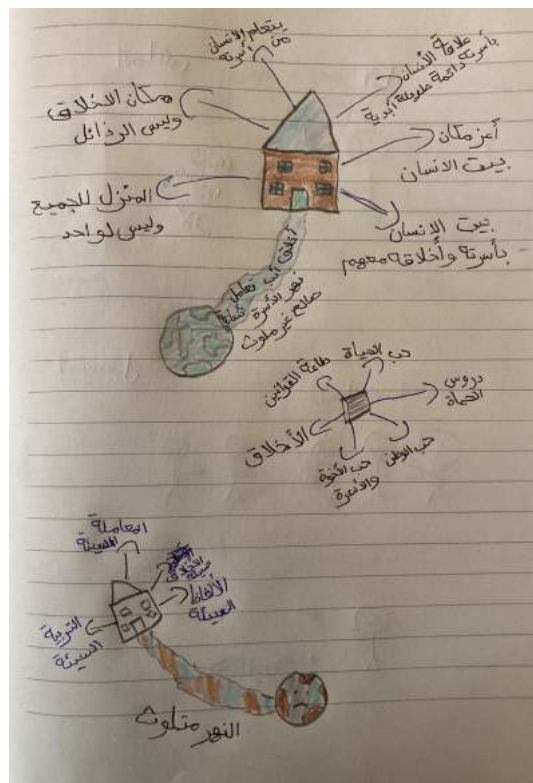 يتعلم الانسان
من أسرته
علاقة الأنسان
بأسرته دائمة طويلة أبدية
مكان الاخلاق
وليس الرذائل
أعز مكان
بيت الانسان
المنزل للجميع
وليس لواحد
بيت الإنسان
بأسرته وأخلاقه معهم
أخلاق أدب تعامل
نهر الأسرة
صالح غير ملوث
حب الحياة
طاعة القوانين
دروس
الحياة
الأخلاق
حب الوطن
حب الأخوة
والأسرة
المعاملة
السيئة
الأخلاق
سيئة
الألفاظ
السيئة
التربية
السيئة
النهر متلوث